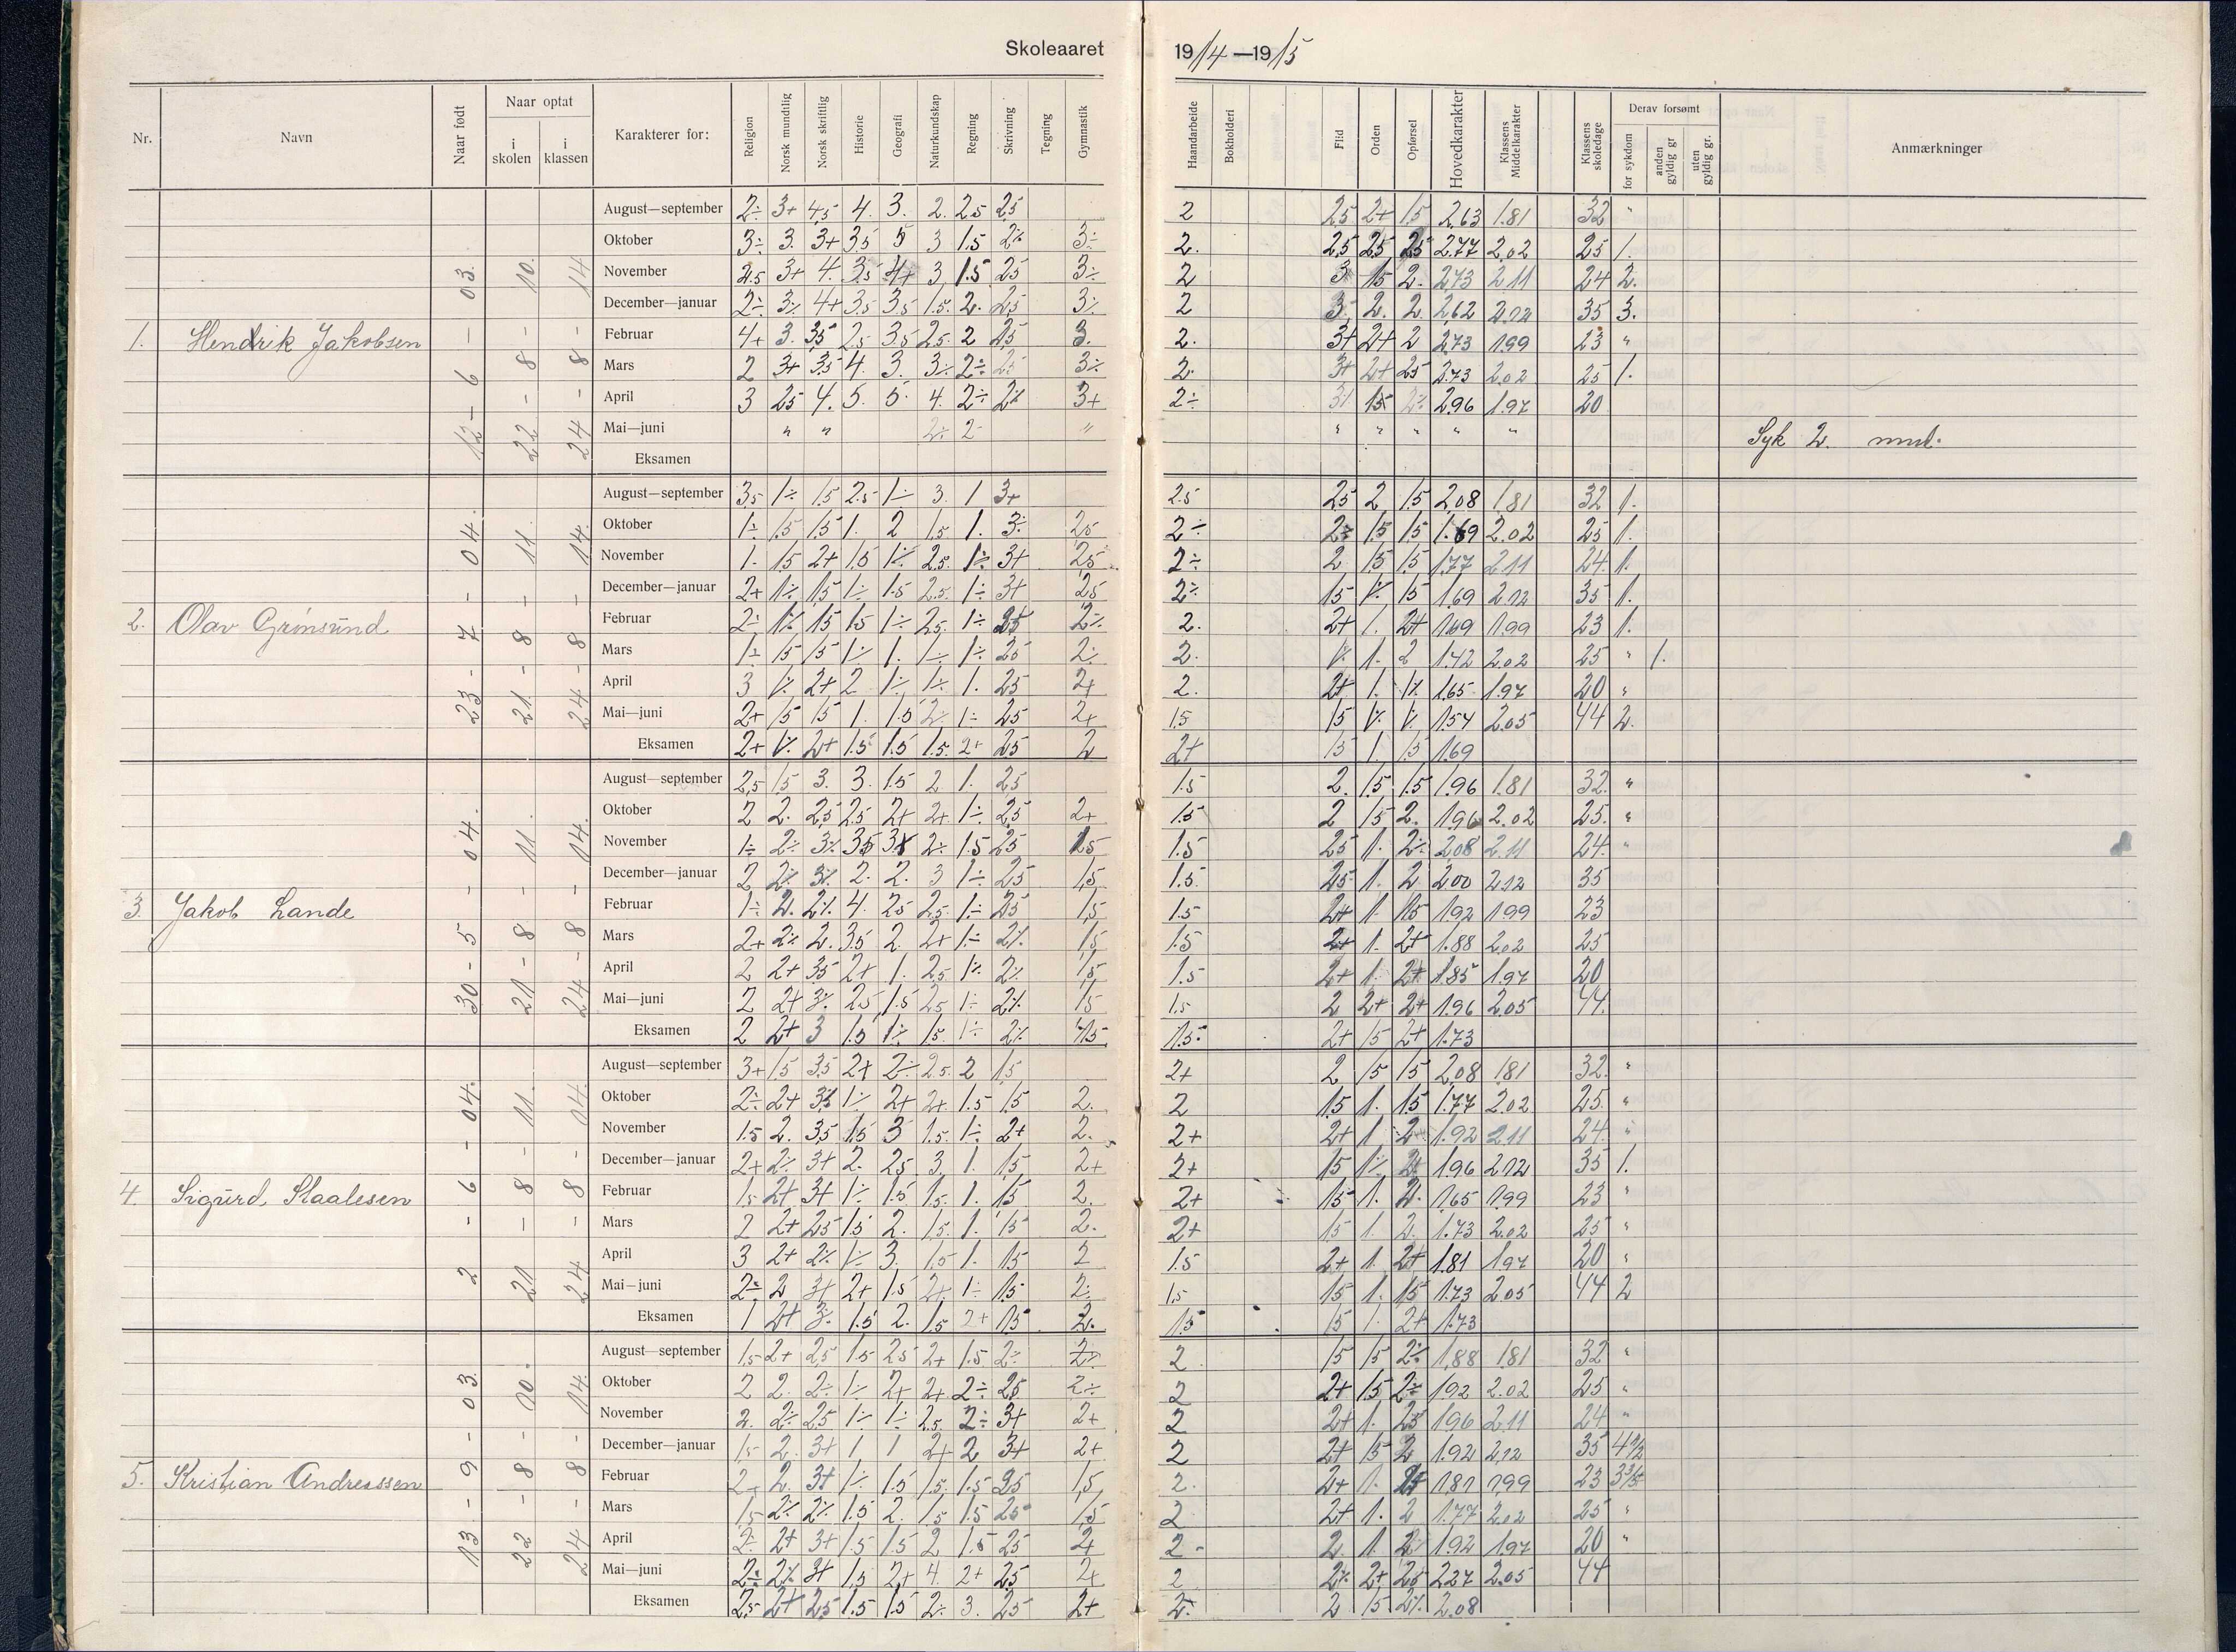 Skoleaaret 1914—1915
Nr. Navn Naar født Naar optat i skolen i klassen Karakterer for: Religion Norsk mundtlig Norsk skriftlig Historie Geografi Naturkundskap Regning Skrivning Tegning Gymnastik Haandarbeide Bokholderi Flid Orden Opførsel Hovedkarakter Klassens Middelkarakter Klassens skoledage Derav forsømt for sykdom anden gyldig gr uten gyldig gr. Anmærkninger
1. Hendrik Jakobsen 12 – 6 – 03. 22 – 8 – 10. 24 – 8 – 14
August—september 2÷ 3+ 4,5 4. 3. 2. 2.5 2.5 2 2.5 2+ 1.5 2.63 1.81 32 "
Oktober 3÷ 3. 3+ 3.5 5 3 1.5 2÷ 3÷ 2. 2.5 2.5 2.5 2.77 2.02 25 1.
November 2.5 3+ 4. 3.5 4+ 3 1.5 2.5 3÷ 2 3 1.5 2. 2.73 2.11 24 2.
December—januar 2÷ 3÷ 4+ 3.5 3.5 1.5. 2. 2.5 3÷ 2 3. 2. 2. 2.62 2.12 35 3.
Februar 4+ 3. 3.5 2.5 3.5 2.5. 2 2.5 3. 2. 3+ 2+ 2 2.73 1.99 23 "
Mars 2 3+ 3.5 4. 3. 3÷ 2÷ 2.5 3÷ 2. 3+ 2+ 2.5 2.73 2.02 25 1.
April 3 2.5 4. 5. 5. 4. 2÷ 2÷ 3+ 2÷ 3+ 1.5 2÷ 2.96 1.97 20
Mai—juni " " 2÷ 2 " " " " " " Syk 2. mnd.
Eksamen
2. Olav Grønsund 23 – 7 – 04. 21 – 8 – 11. 24 – 8 – 14.
August—september 3.5 1÷ 1.5 2.5 1÷ 3. 1 3+ 2.5 2.5 2 1.5 2.08 1.81 32 1.
Oktober 1÷ 1.5 1.5 1. 2 1.5 1. 3÷ 2.5 2÷ 2÷ 1.5 1.5 1.69 2.02 25 1.
November 1. 1.5 2+ 1.5 1÷ 2.5. 1÷ 3+ 2.5 2÷ 2 1.5 1.5 1.77 2.11 24 1.
December—januar 2+ 1÷ 1.5 1÷ 1.5 2.5. 1÷ 3+ 2.5 2÷ 1.5 1÷ 1.5 1.69 2.12 35 1.
Februar 2÷ 1÷ 1.5 1.5 1÷ 2.5. 1÷ 2.5 2÷ 2. 2+ 1. 2+ 1.69 1.99 23 1.
Mars 1÷ 1.5 1.5 1÷ 1. 1÷ 1÷ 2.5 2÷ 2. 1÷ 1. 2 1.42 2.02 25 " 1.
April 3 1÷ 2+ 2 1÷ 1÷ 1. 2.5 2+ 2. 2+ 1. 1÷ 1.65 1.97 20 "
Mai—juni 2+ 1.5 1.5 1. 1.5 2÷ 1÷ 2.5 2+ 1.5 1.5 1÷ 1÷ 1.54 2.05 44 2.
Eksamen 2+ 1÷ 2+ 1.5 1.5 1.5. 2+ 2.5 2 2+ 1.5 1. 1.5 1.69
3. Jakob Lande 30 – 5 – 04. 21 – 8 – 11. 24 – 8 – 14.
August—september 2.5 1.5 3. 3. 1.5 2 1. 2.5 1.5 2. 1.5 1.5 1.96 1.81 32. "
Oktober 2 2. 2.5 2.5 2+ 2+ 1÷ 2.5 2+ 1.5 2 1.5 2. 1.96 2.02 25. "
November 1÷ 2÷ 3÷ 3.5 2÷ 1.5 2.5 1.5 1.5 2.5 1. 2÷ 2.08 2.11 24. "
December—januar 2 2÷ 3÷ 2. 2. 3 1÷ 2.5 1.5 1.5 2.5 1. 2 2.00 2.12 35
Februar 1÷ 2. 2÷ 4. 2.5 2.5. 1÷ 2.5 1.5 1.5 2+ 1. 1.5 1.92 1.99 23
Mars 2+ 2÷ 2. 3.5 2. 2+ 1÷ 2÷ 1.5 1.5 2+ 1. 2+ 1.88 2.02 25
April 2 2+ 3.5 2+ 1. 2.5 1÷ 2÷ 1.5 1.5 2+ 1. 2+ 1.85 1.97 20
Mai—juni 2 2+ 3÷ 2.5 1.5 2.5 1÷ 2÷ 1.5 1.5 2 2+ 2+ 1.96 2.05 44.
Eksamen 2 2+ 3 1.5 1÷ 1.5. 1÷ 2÷ 1.5 1.5. 2+ 1.5 2+ 1.73
4. Sigurd Staalesen 2 – 6 – 04. 21 – 8 – 11. 24 – 8 – 14.
August—september 3+ 1.5 3.5 2+ 2÷ 2.5. 2 1.5 2+ 2 1.5 1.5 2.08 1.81 32. "
Oktober 2÷ 2+ 3÷ 1÷ 2+ 2+ 1.5 1.5 2. 2 1.5 1. 1.5 1.77 2.02 25. "
November 1.5 2. 3.5 1.5 3 1.5. 1÷ 2+ 2. 2+ 2+ 1 2 1.92 2.11 24. "
December—januar 2+ 2÷ 3+ 2. 2.5 3. 1. 1.5 2+ 2+ 1.5 1÷ 2+ 1.96 2.12 35 1.
Februar 1.5 2+ 3+ 1÷ 1.5 1.5. 1. 1.5 2. 2+ 1.5 1. 2. 1.65 1.99 23 "
Mars 2 2+ 2.5 1.5 2. 1.5. 1. 1.5 2. 2+ 1.5 1. 2. 1.73 2.02 25 "
April 3 2+ 2÷ 1÷ 3. 1.5 1. 1.5 2 1.5 2+ 1. 2+ 1.81 1.97 20 "
Mai—juni 2÷ 2 3+ 2+ 1.5 2+ 1÷ 1.5 2÷ 1.5 1.5 1. 1.5 1.73 2.05 44 2
Eksamen 1 2+ 3÷ 1.5 2. 1.5 2+ 1.5 2. 1.5 1.5 1. 2+ 1.73
5. Kristian Andreassen 13 – 9 – 03. 22 – 8 – 10. 24 – 8 – 14.
August—september 1.5 2+ 2.5 1.5 2.5 2+ 1.5 2÷ 2÷ 2 1.5 1.5 2÷ 1.88 1.81 32 "
Oktober 2 2. 2÷ 1÷ 2+ 2+ 2÷ 2.5 2÷ 2 2+ 1.5 2÷ 1.92 2.02 25 "
November 2. 2÷ 2.5 1÷ 1÷ 2.5. 2÷ 3+ 2+ 2 2+ 1. 2.5 1.96 2.11 24 "
December—januar 1.5 2. 3+ 1 1 2+ 2 3+ 2+ 2 2+ 1.5 2 1.92 2.12 35
Februar 2+ 2. 3+ 1÷ 1.5 1.5. 1.5 1.5 2. 2+ 1. 1.81 1.99 23
Mars 1.5 2÷ 2÷ 1.5 2. 1.5 1.5 2.5 1.5 2 2+ 1. 2 1.77 2.02 25 "
April 2÷ 2+ 3+ 1.5 1.5 2 1.5 2.5 2+ 2 2. 1. 2 1.92 1.97 20 "
Mai—juni 2÷ 2÷ 3+ 1.5 2+ 4. 2+ 2.5 2+ 2 2÷ 2+ 2.5 2.27 2.05 44
Eksamen 2.5 2+ 2.5 1.5 1.5 2÷ 3. 2.5 2+ 2. 2 1.5 2÷ 2.08